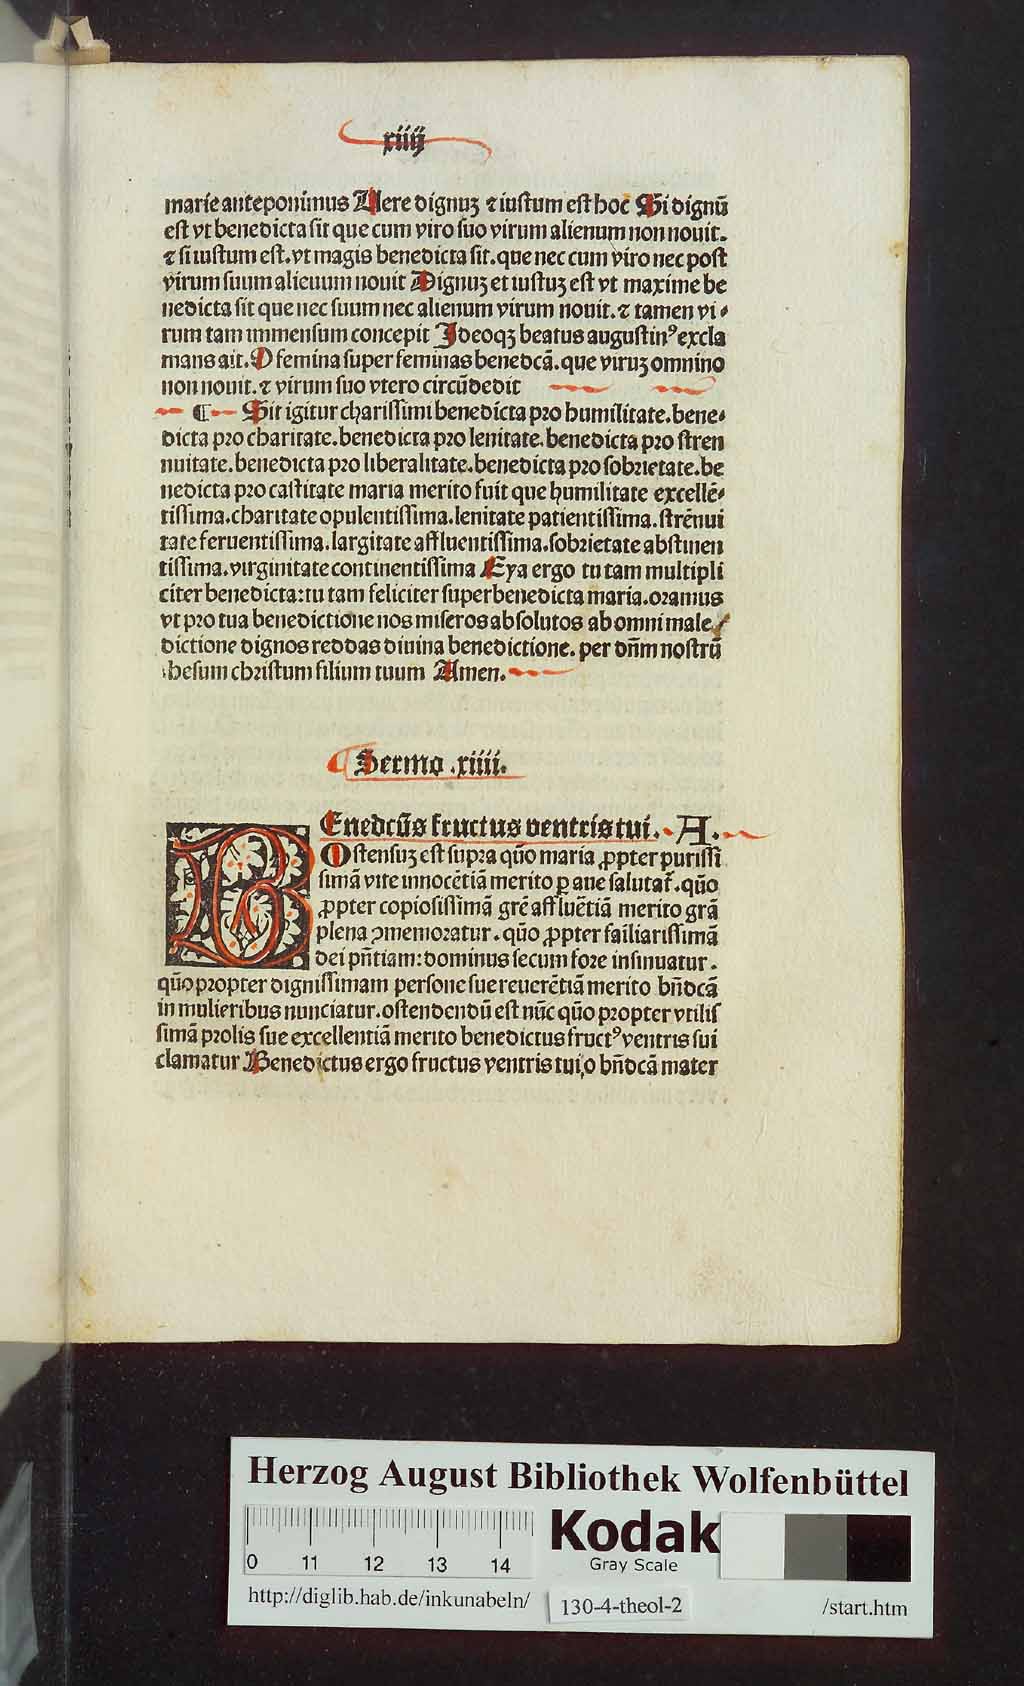 xiiij
marie anteponimus Uere dignuʒ ⁊ iustum est hoc̄ Si dignū
est vt benedicta sit que cum viro suo virum alienum non nouit.
⁊ si iustum est. vt magis benedicta sit. que nec cum viro nec post
virum suum alieuum nouit Dignuʒ et iustuʒ est vt maxime be
nedicta sit que nec suum nec alienum virum nouit. ⁊ tamen vi⸗
rum tam immensum concepit Ideoqʒ beatus augustinꝰ excla
mans ait. O femina super feminas benedcā. que viruʒ omnino
non nouit. ⁊ virum suo vtero circūdedit
¶ Sit igitur charissimi benedicta pro humilitate. bene⸗
dicta pro charitate. benedicta pro lenitate. benedicta pro stren
nuitate. benedicta pro liberalitate. benedicta pro sobrietate. be
nedicta pro castitate maria merito fuit que humilitate excellē⸗
tissima. charitate opulentissima. lenitate patientissima. strēnui
tate feruentissima. largitate affluentissima. sobrietate abstinen
tissima. virginitate continentissima Eya ergo tu tam multipli
citer benedicta: tu tam feliciter superbenedicta maria. oramus
vt pro tua benedictione nos miseros absolutos ab omni male⸗
dictione dignos reddas diuina benedictione. per dn̄m nostrū
hesum christum filium tuum Amen.
Sermo .xiiii.
BEnedcūs fructus ventris tui. A.
Ostensuʒ est supra quō maria ꝓpter purissi
simā vite innocētiā merito ꝑ aue salutat̄. quō
ꝓpter copiosissimā grē affluētiā merito grā
plena ꝯmemoratur. quō ꝓpter fai̅liarissimā
dei pn̄tiam: dominus secum fore insinuatur.
quō propter dignissimam persone sue reuerētiā merito bn̄dcā
in mulieribus nunciatur. ostendendū est nūc quō propter vtilis
simā prolis sue excellentiā merito benedictus fructꝰ ventris sui
clamatur Benedictus ergo fructus ventris tui, o bn̄dcā mater
Herzog August Bibliothek Wolfenbüttel
0 11 12 13 14
Kodak
Gray Scale
http://diglib.hab.de/inkunabeln/ 130-4-theol-2 /start.htm